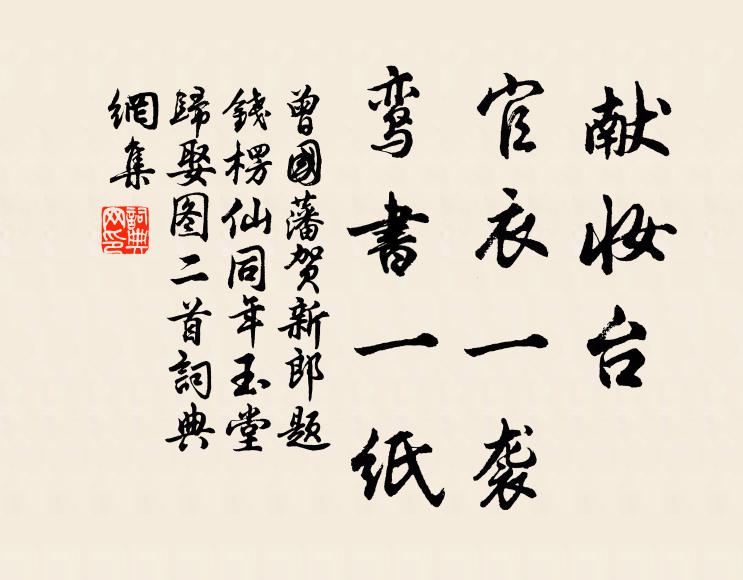 献妆台
官衣一袭
鸾书一纸
曾國藩贺新郎题
錢楞仙同年玉堂
歸娶图二首詞典
網集
詞典网印